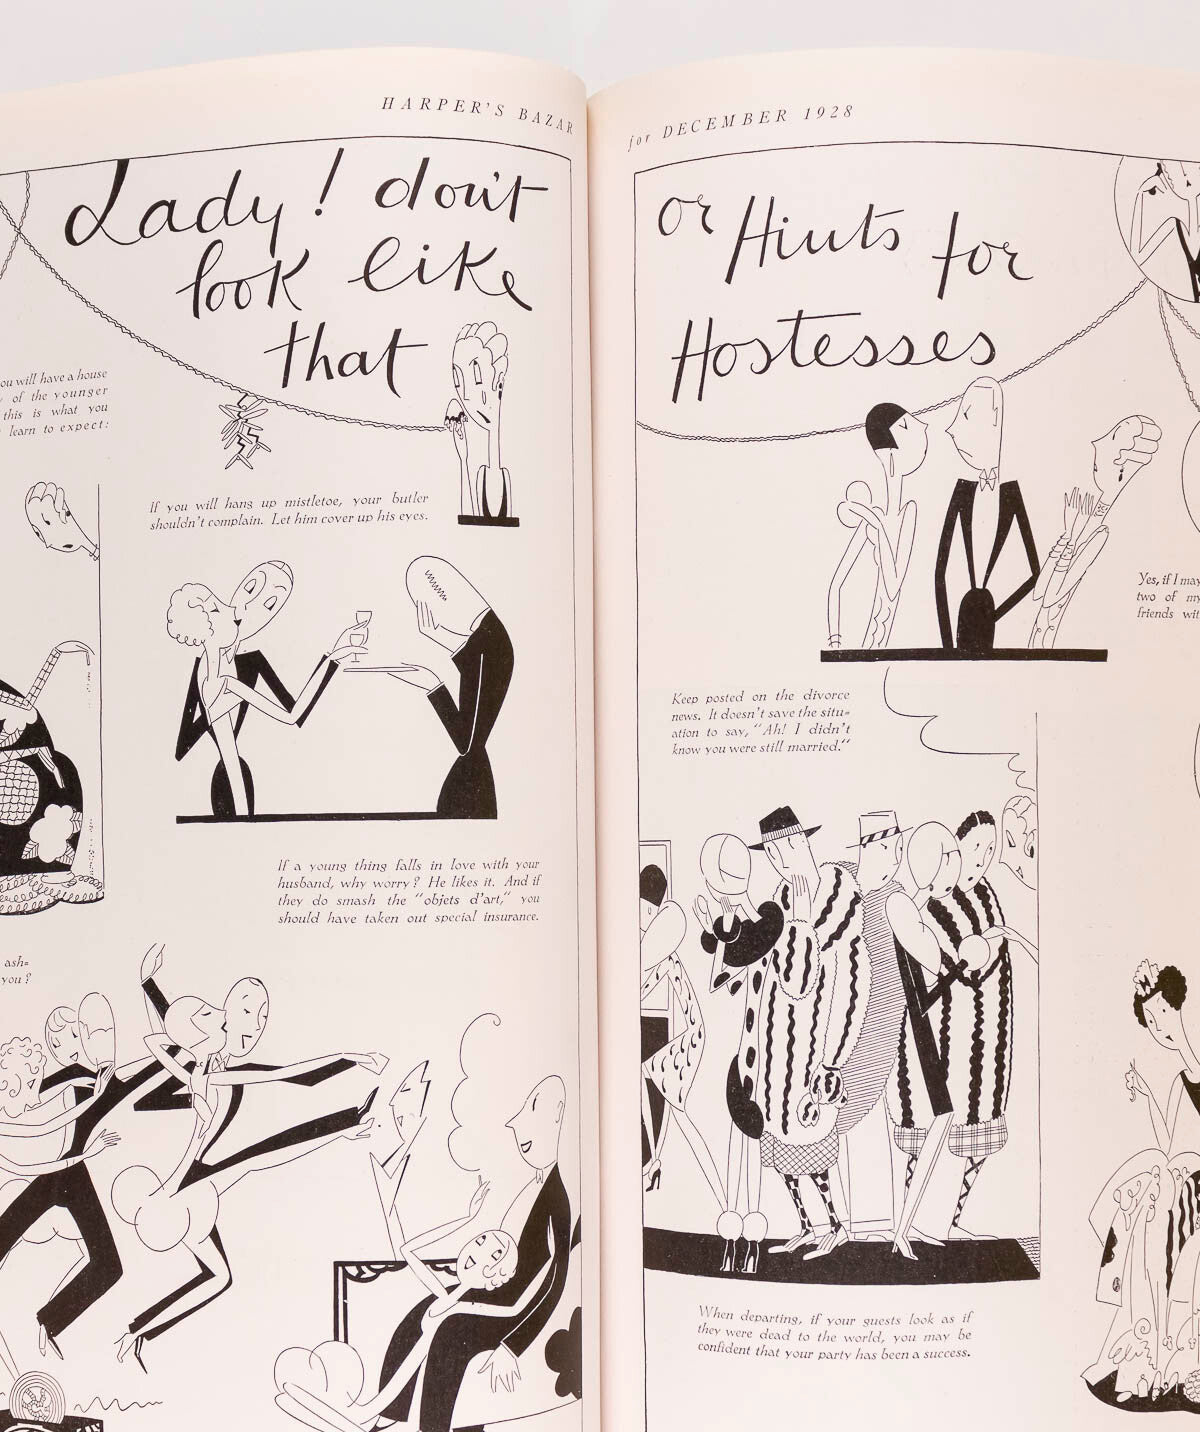 HARPER'S BAZAR
Lady! don't
look like
that
ou will have a house
of the younger
this is what you
learn to expect:
If you will hang up mistletoe, your butler
shouldn't complain. Let him cover up his eyes.
If a young thing falls in love with your
husband, why worry? He likes it. And if
they do smash the "objets d'art," you
should have taken out special insurance.
ash-
you?
for DECEMBER 1928
or Hints for
Hostesses
Yes, if I may
two of my
friends wit
Keep posted on the divorce
news. It doesn't save the situ-
ation to say, "Ah! I didn't
know you were still married."
When departing, if your guests look as if
they were dead to the world, you may be
confident that your party has been a success.